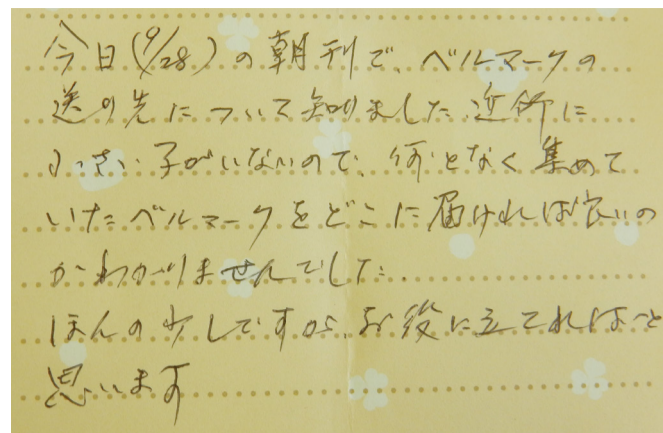 今日(9/28)の朝刊で、ベルマークの
送り先について知りました.近所に
小さい子がいないので、何となく集めて
いたベルマークをどこに届ければ良いの
かわかりませんでした.
ほんの少しですが、お役に立てればと
思います